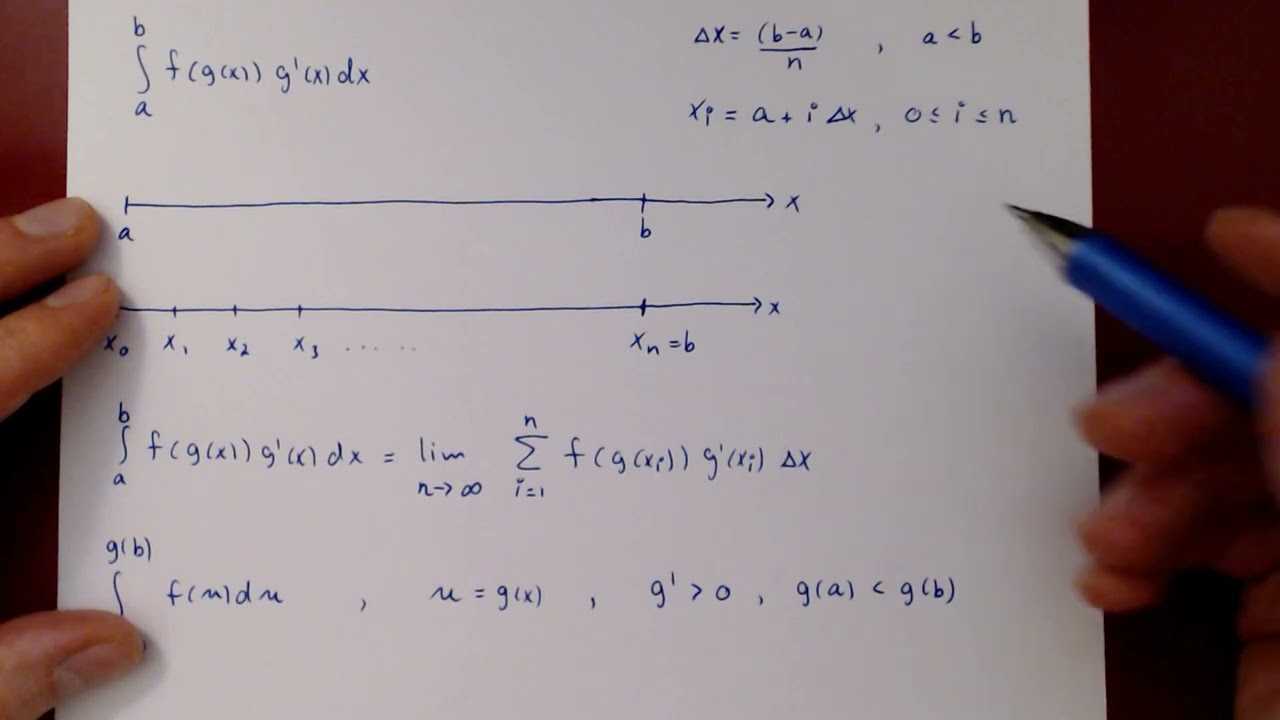 ∫_a^b f(g(x)) g'(x) dx
Δx = (b-a)/n , a < b
x_i = a + i Δx , 0 ≤ i ≤ n
x
a b
x
x_0 x_1 x_2 x_3 ..... x_n = b
∫_a^b f(g(x)) g'(x) dx = lim_{n→∞} ∑_{i=1}^n f(g(x_i)) g'(x_i) Δx
∫^{g(b)} f(u) du , u = g(x) , g' > 0 , g(a) < g(b)